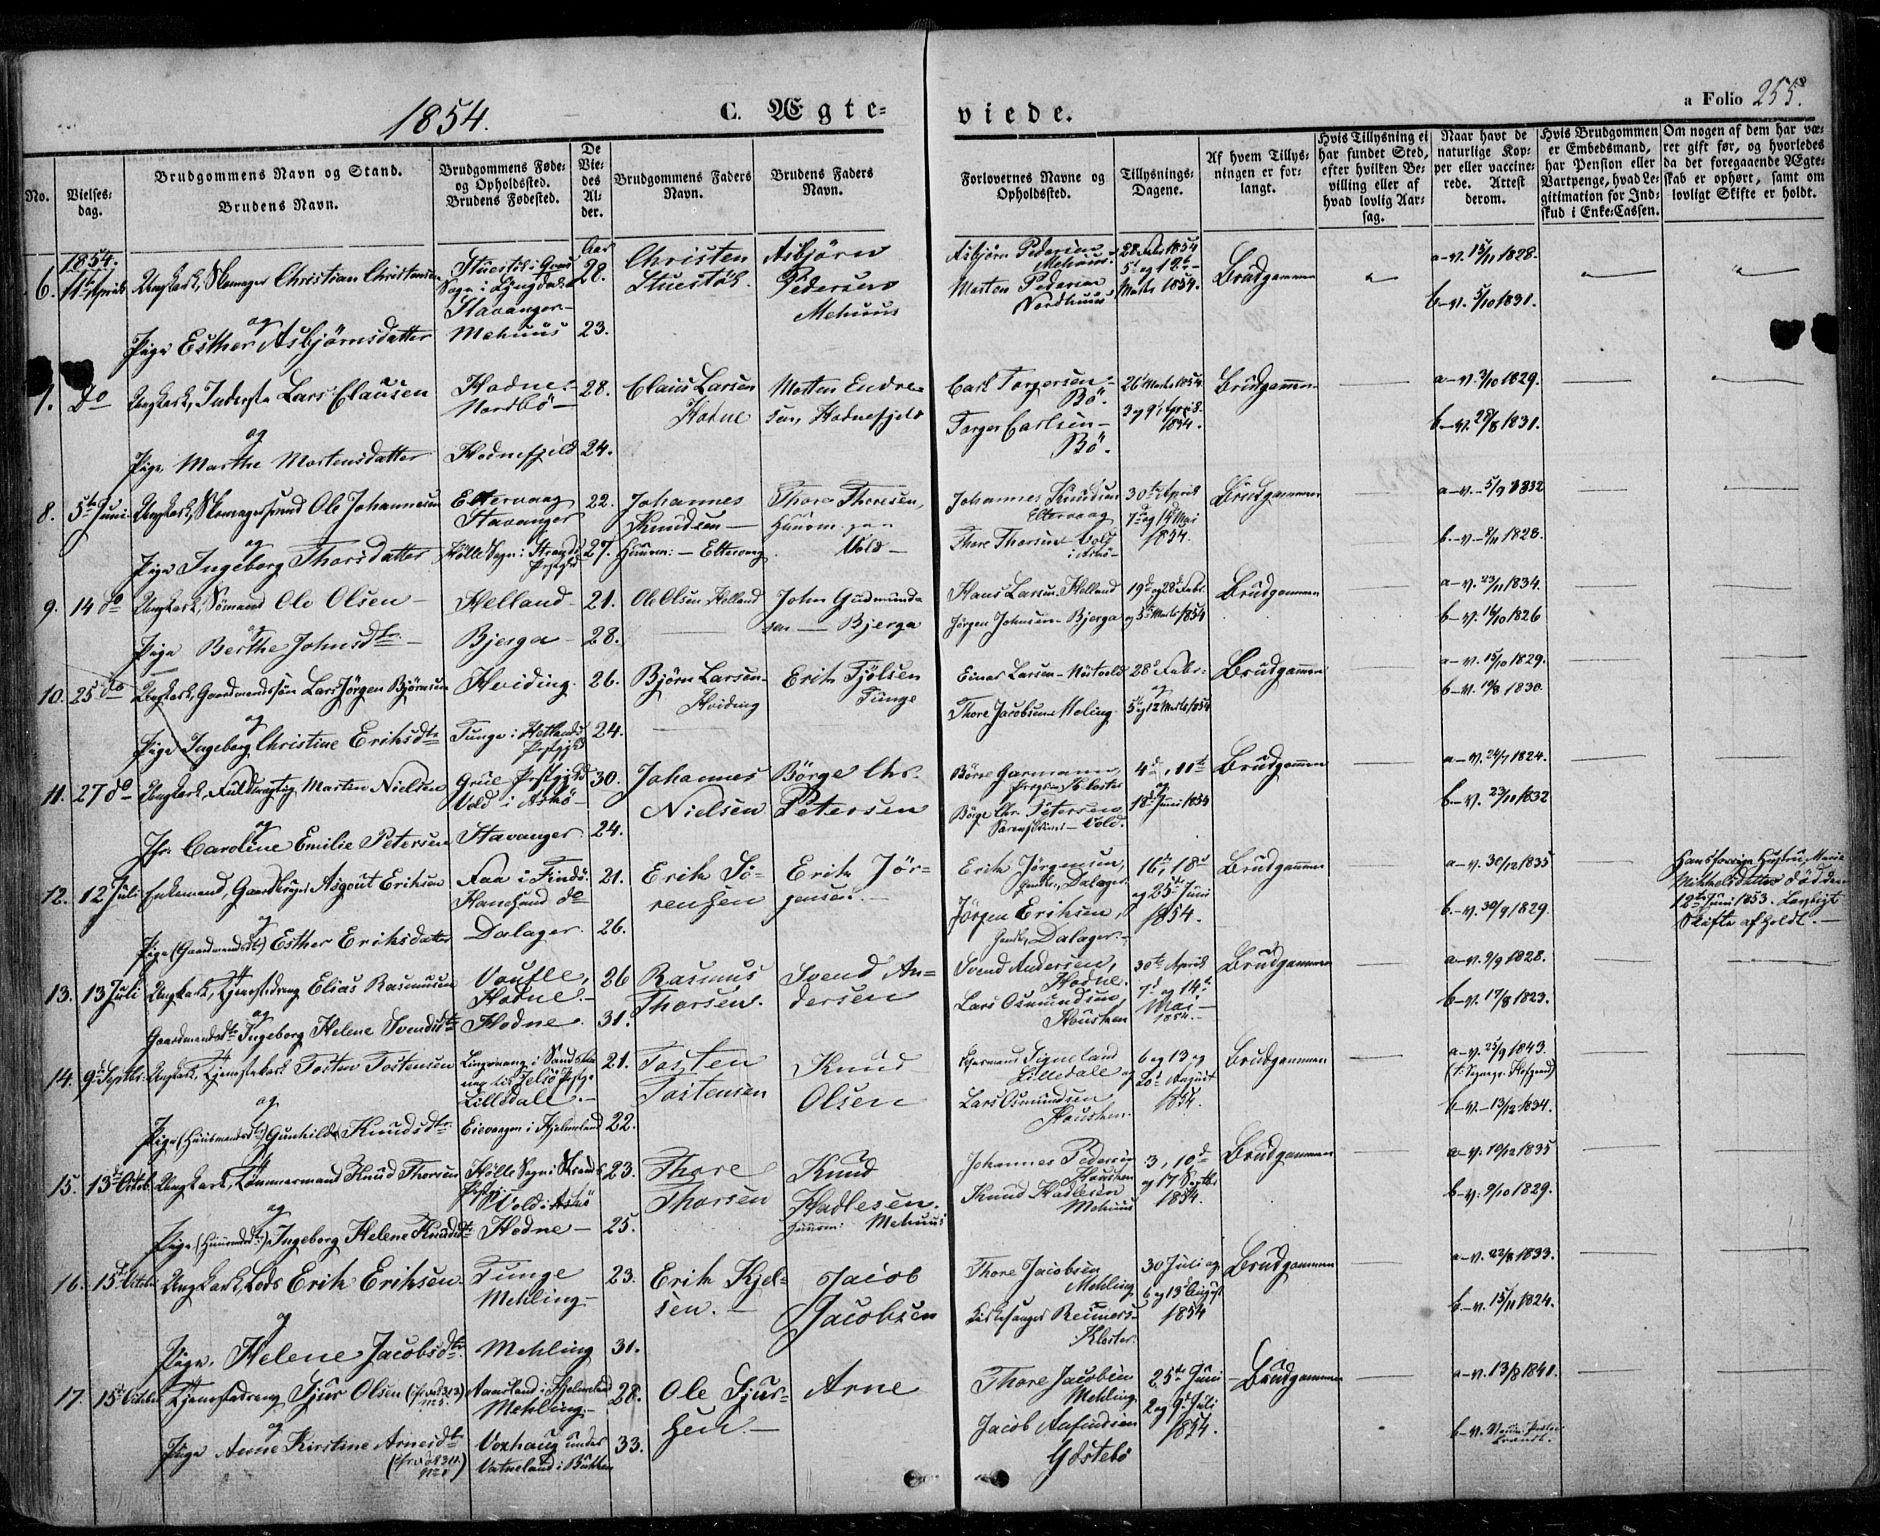 1854.
C. Ægte-
viede.
a Folio 255.
No.
Vielses-
dag.
Brudgommens Navn og Stand.
Brudens Navn.
Brudgommens Føde-
og Opholdssted.
Brudens Fødested.
De
Vie-
des
Al-
der.
Brudgommens Faders
Navn.
Brudens Faders
Navn.
Forlovernes Navne og
Opholdssted.
Tillysnings-
Dagene.
Af hvem Tillys-
ningen er for-
langt.
Hvis Tillysning ei
har fundet Sted,
efter hvilken Be-
villing eller af
hvad lovlig Aar-
sag.
Naar havt de
naturlige Kop-
per eller vaccine-
rede. Attest
derom.
Hvis Brudgommen
er Embedsmand,
har Pension eller
Vartpenge, hvad Le-
gitimation for Ind-
skud i Enke-Cassen.
Om nogen af dem har væ-
ret gift før, og hvorledes
da det foregaaende Ægte-
skab er ophørt, samt om
lovligt Skifte er holdt.
1854.
6. 11te April Ungkarl, Skomager Christian Christensen
og
Pige Esther Asbjørnsdatter
Stavanger
Mehuus
Aar
28.
23.
Christen
Stuestøl
Asbjørn
Pedersen
Mehuus
Asbjörn Pedersen
Mehuus
Morten Pedersen
Nordhuus
28 Febr 1854
5t og 12te
Marts 1854.
Brudgommen
a-v. 15/11 1828.
b-v. 5/10 1831.
7. Do Ungkarl, Inderste Lars Clausen
og
Pige Marthe Mortensdatter
Hodne
Nordbö
Hodnefjeld
28.
24.
Claus Larsen
Hodne
Morten Endre-
sen Hodnefjeld
Carl Torgersen
Bö.
Torger Carlsen
Bö.
26 Marts 1854
3 og 9 April
1854.
Brudgommen
a-v. 3/10 1829.
b-v. 28/8 1831.
8. 5te Juni Ungkarl, Ole Johannesen
og
Pige Ingeborg Thorsdatter
Eltervaag
Stavanger
Hölle Sogn i Strands
Prstgjd
22.
27.
Johannes
Knudsen
Huusm: Eltervaag
Thore Thoresen,
Huusm.
Vold
Johannes Knudsen
Eltervaag
Thore Thorsen Vold
i Askö
30te April
7de og 14de Mai
1854.
Brudgommen
a-v. 5/9 1832
b-v. 8/11 1828.
9. 14 do Ungkarl, Sömand Ole Olsen
og
Pige Berthe Johnsdtr
Helland
Bjerga
21.
28.
Ole Olsen Helland
John Gudmund-
sen Bjerga
Hans Larsen Helland
Jörgen Johnsen Bjerga
19de og 28 Febr.
og 5te Marts 1854
Brudgommen
a-v. 23/11 1834.
b-v. 16/10 1826
10. 25 do Ungkarl, Gaardmandssön Lars Jörgen Björnsen
og
Pige Ingeborg Christine Eriksdtr
Hviding
Tunge i Hetlands
Prstgjd
26.
24.
Björn Larsen
Hviding
Erik Tjölsen
Tunge
Einar Larsen
Thore Jacobsen Meling
28de Febr.
og
5te og 12 Marts 1854
Brudgommen
a-v. 15/10 1829.
b-v. 19/8 1830.
11. 27 do Ungkarl, Fuldmægtig Morten Nielsen
og
Jfr. Caroline Emilie Petersen
Grue Prstgjd
Vold i Askö
Stavanger
30.
24.
Johannes
Nielsen
Börge Chr.
Petersen
Börre Garmann,
Kloster
Börge Chr. Petersen
Vold.
4de, 11te
og
18de Juni 1854
Brudgommen
a-v. 24/7 1824.
b-v. 23/11 1832
12. 12 Juli Enkemand, Gaardbruger Asgout Eriksen
og
Pige (Gaardmandsdtr) Esther Eriksdatter
Faa i Findö
Hanesund do
Dalager
21.
26.
Erik Sö-
rensen
Erik Jör-
gensen
Erik Jörgensen,
Gmdbr, Dalager
Jörgen Eriksen,
Gmdbr, Dalager
11te, 18de
og 25de Juni
1854.
Brudgommen
a-v. 30/12 1835
b-v. 30/9 1829.
Hans forrige Hustru, Marie
Mikkelsdatter död den
12te Juni 1853. Lovligt
Skifte afholdt.
13. 13 Juli Ungkarl, Tjenestedreng Elias Rasmusen
og
Gaardmandsdtr Ingeborg Helene Svendsdtr
Voufle,
Hodne.
Hodne.
26
31.
Rasmus
Thorsen.
Svend An-
dersen
Svend Andersen,
Hodne.
Lars Osmundsen
Housken
30te April
7de og 14de
Mai
1854.
Brudgommen
a-v. 9/9 1828.
b-v. 17/8 1823.
14. 9de Septbr. Ungkarl, Tjenestekarl Tosten Tostensen
og
Pige (Huusmandsdtr) Gunhilde Knudsdtr
Lilledale.
Eievaagen i Hjelmeland
21.
22.
Tosten
Tostensen
Knud
Olsen
Signeland
Lilledale og
Lars Osmundsen
Housken
6 og 13 og
20de August
1854.
Brudgommen
a-v. 25/9 1843.
b-v. 13/12 1834.
15. 13de Octob. Ungkarl, Tömmermand Knud Thorsen
og
Pige (Huusmdsdtr) Ingeborg Helene Knudsdtr
Hölle Sogn i Strands
Prstgj.
Vold i Askö
Hodne
23.
25.
Thore
Thorsen
Knud
Hadlesen.
Huusm: Mehuus
Johannes Pedersen
Housken
Knud Hadlesen
Mehuus
3, 10de
og 17 Septbr
1854.
Brudgommen
a-v. 19/12 1835
b-v. 9/10 1829.
16. 15de Octobr Ungkarl, Lods Erik Eriksen
og
Pige, Helene Jacobsdtr
Tunge
Mehling
Mehling
23.
31.
Erik Kjel-
sen.
Jacob
Jacobsen
Thore Jacobsen
Mehling
Kirkesanger Reimers
Kloster
30 Juli og
6 og 13 August
1854
Brudgommen
a-v. 22/8 1833.
b-v. 15/11 1824.
17. 15de Octobr Tjenestedreng Sjur Olsen
og
Pige Anne Kirstine Arnesdtr
Aarland i Hjelmeland
Mehling
Voxhaug under
Vatneland i Bukken
28.
33.
Ole Sjur-
sen.
Arne
Thore Jacobsen
Mehling
Jacob Aamundsen
Göstebö
25de Juni
2 og 9de Juli
1854.
Brudgommen
a-v. 13/8 1841.